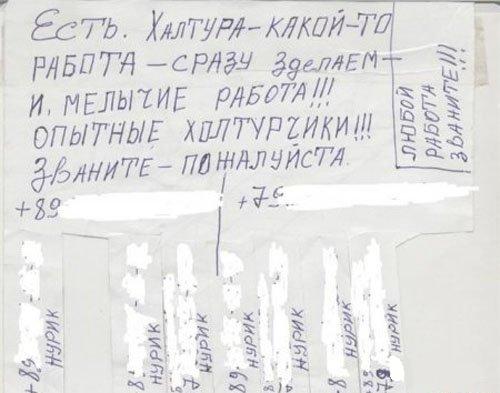 Есть. Халтура-какой-то
работа-сразу зделаем-
и, мелычие работа!!!
опытные холтурчики!!!
Званите-пожалуйста.
+89
+79
любой
работа
званите!!!
+89 Нурик
8 Нурик
7 Нурик
89 Нурик
Нурик
8 Нурик
89 78 Нурик